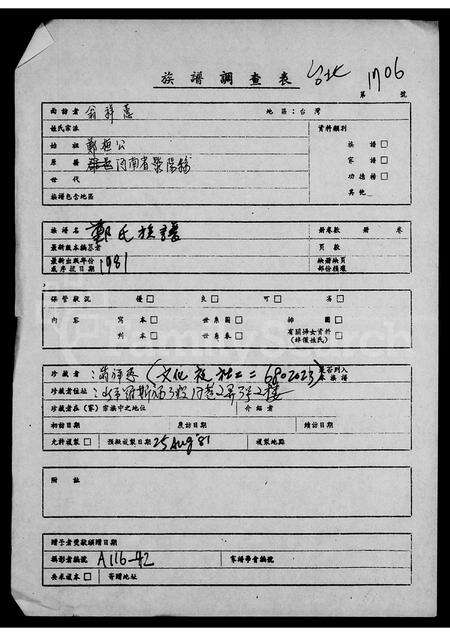 族譜調查表 台北 1706
第 號
面訪者 翁祥惠 地區：台灣
姓氏宗派 資料類別
始祖 鄭桓公 族譜□
原籍 河南省滎陽縣 家譜□
世代 功德榜□
族譜包含地區 其他
族譜名 鄭氏族譜 冊卷數 冊 卷
最新版本編纂者 頁數
最新出版年份或序拔日期 1981 缺冊缺頁部份損壞
保管狀況 優□ 良□ 可□ 劣□
內容 寫本□ 世系圖□ 插圖□
刊本□ 世系表□ 有關婦女資料(詳間姓氏)□
珍藏者：翁祥惠(文化夜社工二 6802023) 是否列入本族譜
珍藏者住址：
珍藏者在(家)宗族中之地位 介紹者
初訪日期 展訪日期 續訪日期
允許複製□ 預擬複製日期 25 Aug '81 複製地點
附註
贈予者獎狀頒贈日期
攝影者編號 A116-42 家譜學會編號
要求複本□ 寄贈地址